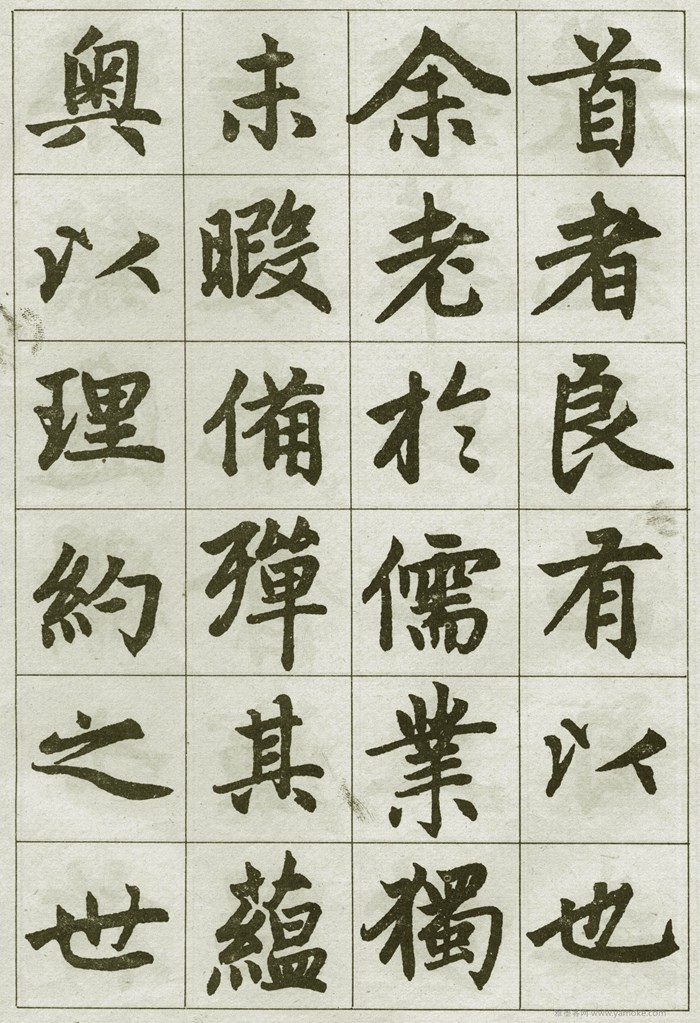 首者良有以也
余老於儒業獨
未暇備彈其蘊
奥以理約之世
雅墨客网 www.yamoke.com